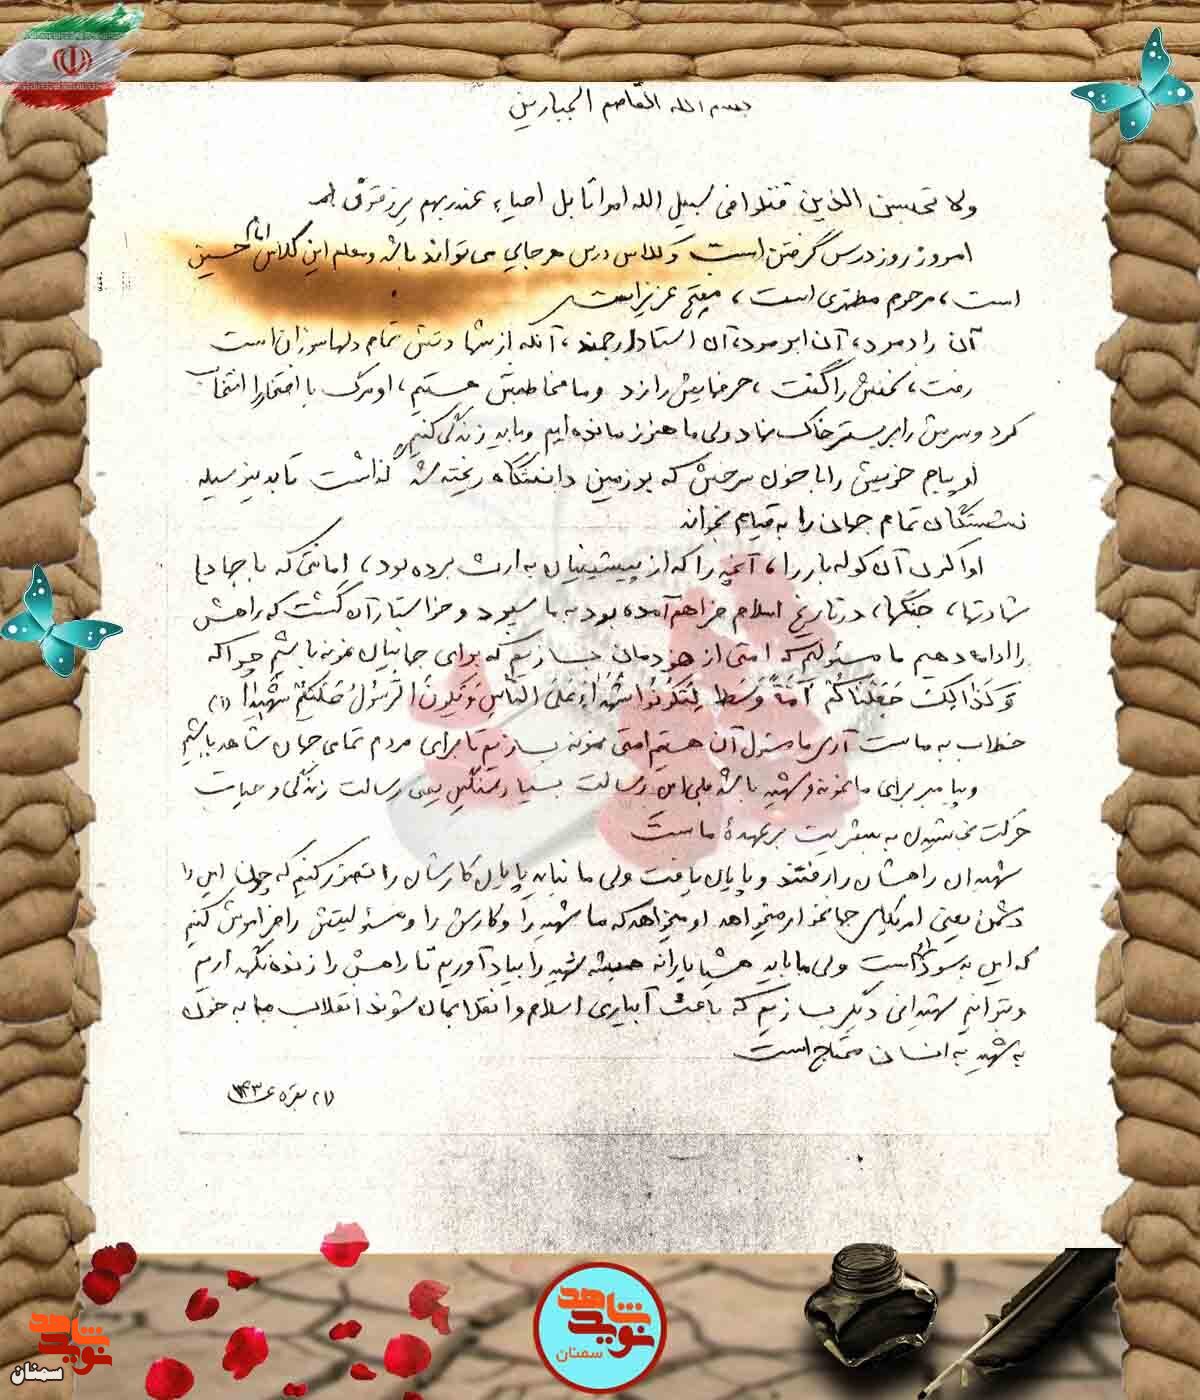 بسم الله القاصم الجبارین
ولا تحسبن الذین قتلوا فی سبیل الله امواتا بل احیاء عند ربهم یرزقون
امروز روز درس گرفتن است و کلاس درس هر جایی می تواند باشد و معلم این کلاس امام حسین
است، مرحوم مطهری است، مفتح عزیز است
آن رادمرد، آن ابرمرد، آن استاد ارجمند، آنکه از شهادتش تمام دلها سوزان است
رفت، سخنش را گفت، حرفهایش را زد و ما مخاطبش هستیم، او مرگ با افتخار را انتخاب
کرد و سرش را بر بستر خاک نهاد ولی ما هنوز مانده ایم و باید زندگی کنیم
او پیام خویش را با خون سرخش که بر زمین دانشگاه ریخته شد گذاشت تا بدینوسیله
نشستگان تمام جهان را به قیام بخواند
او اکنون آن کوله بار را، آنچه را که از پیشینیان به ارث برده بود، امانتی که با جهادها
شهادتها، جنگها، در تاریخ اسلام فراهم آمده بود به ما سپرد و خواستار آن گشت که راهش
را ادامه دهیم ما مسئولیم که امتی از خودمان بسازیم که برای جهانیان نمونه باشیم چرا که
وَ کَذالِکَ جَعَلْناکُمْ اُمَّةً وَسَطاً لِتَکُونُوا شُهَداءَ عَلَی النّاسِ وَ یَکُونَ الرَّسُولُ عَلَیْکُمْ شَهیداً (۱)
خطاب به ماست آری ما مسئول آن هستیم امتی نمونه بسازیم تا برای مردم تمامی جهان شاهد باشیم
و پیامبر برای ما نمونه و شهید باشد بلی این رسالت بسیار سنگین یعنی رسالت زندگی و حیات
حرکت بخشیدن به بشریت بر عهدهٔ ماست
شهیدان راهشان را رفتند و پایان یافت ولی ما نباید پایان کارشان را تصور کنیم که چون این را
دشمن یعنی امریکای جهانخوار میخواهد او میخواهد که ما شهید را و کارش را و مسئولیتش را فراموش کنیم
که این به سود او است ولی ما باید هشیارانه همیشه شهید را بیاد آوریم تا راهش را زنده نگهداریم
و بتوانیم شهیدانی دیگر بسازیم که باعث آبیاری اسلام و انقلابمان شوند انقلاب ما به خون
به شهید به انسان محتاج است
(۱) بقره ۱۴۳
شاهد
نوید
سمنان
شاهد
نوید
سمنان